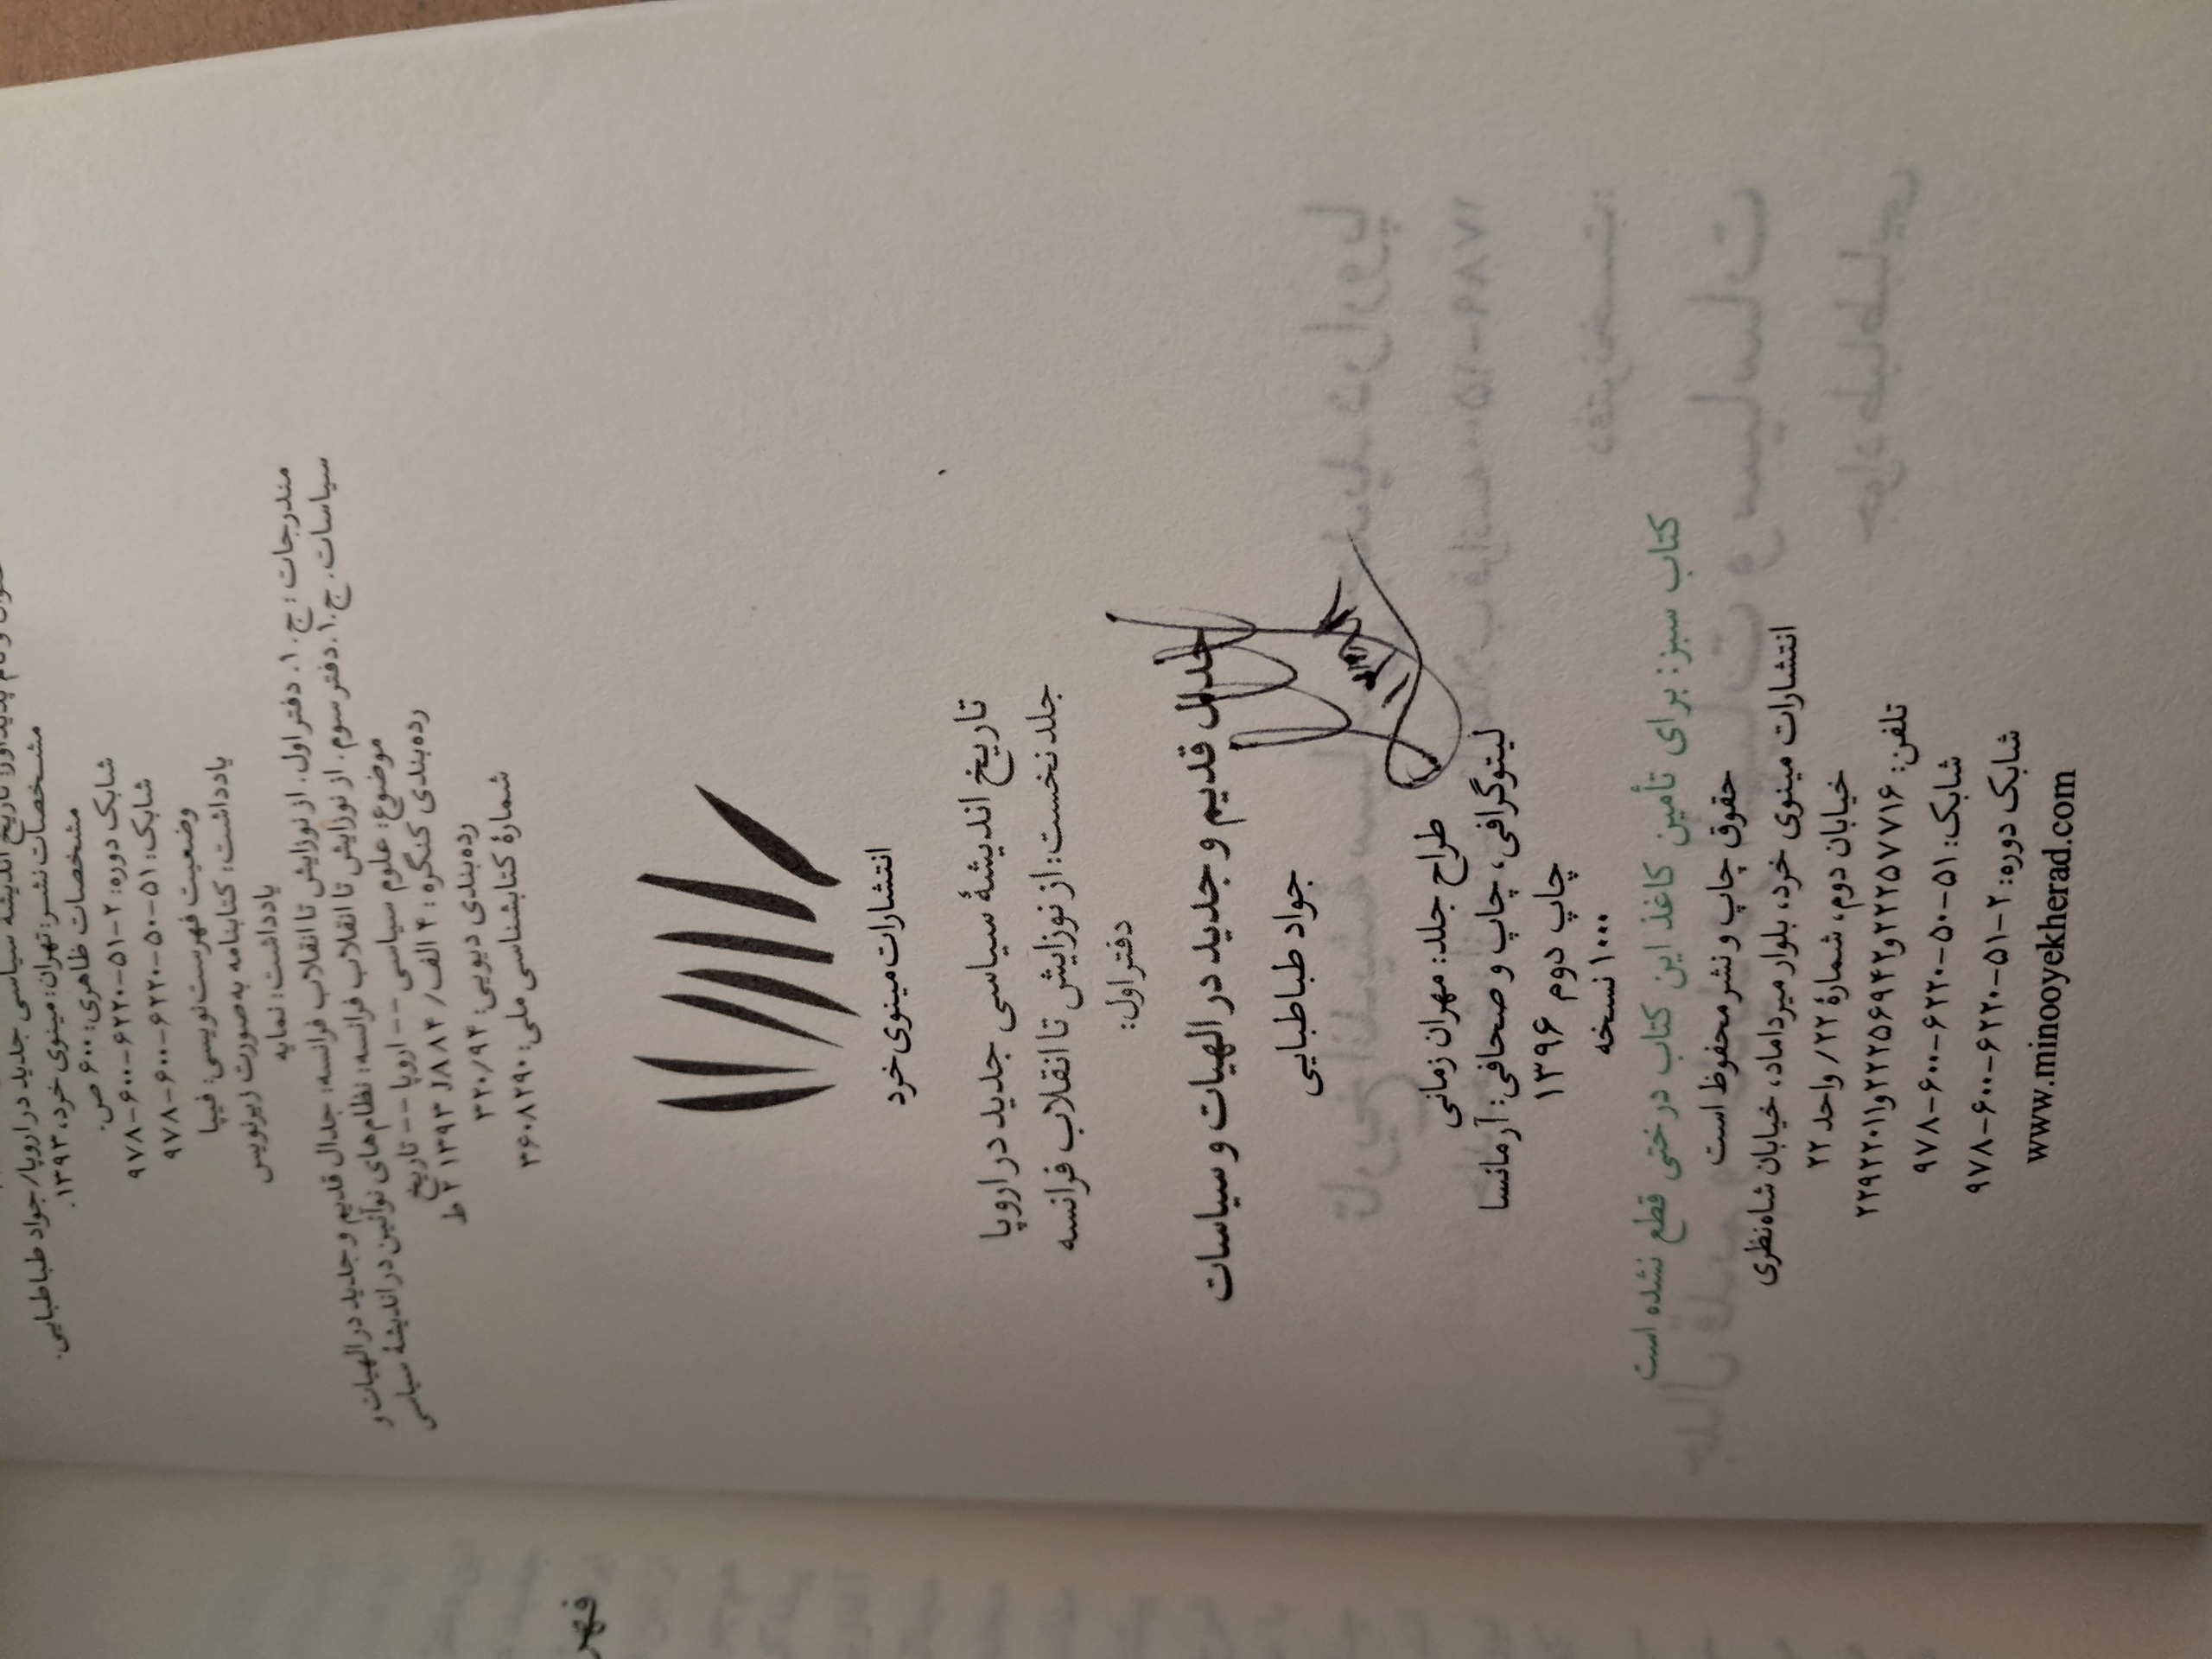 تاریخ اندیشهٔ سیاسی جدید در اروپا/ جواد طباطبایی.
مشخصات نشر: تهران: مینوی خرد، ۱۳۹۳.
مشخصات ظاهری: ۶۰۰ ص.
شابک دوره: ۲-۵۱-۶۲۲۰-۶۰۰-۹۷۸
شابک: ۵۱-۵۰-۶۲۲۰-۶۰۰-۹۷۸
وضعیت فهرست‌نویسی: فیپا
یادداشت: کتابنامه به صورت زیرنویس
یادداشت: نمایه
مندرجات: ج. ۱. دفتر اول. از نوزایش تا انقلاب فرانسه: جدال قدیم و جدید در الهیات و
سیاسات. ج. ۱. دفتر سوم. از نوزایش تا انقلاب فرانسه: نظام‌های نوآئین در اندیشهٔ سیاسی
موضوع: علوم سیاسی -- اروپا -- تاریخ
رده‌بندی کنگره: ۴ الف/ JA۸۴ ۱۳۹۳ ۲ ط
رده‌بندی دیویی: ۳۲۰/۹۴
شمارهٔ کتابشناسی ملی: ۳۶۰۸۲۹۰
انتشارات مینوی خرد
تاریخ اندیشهٔ سیاسی جدید در اروپا
جلد نخست: از نوزایش تا انقلاب فرانسه
دفتر اول:
جدال قدیم و جدید در الهیات و سیاسات
جواد طباطبایی
طراح جلد: مهران زمانی
لیتوگرافی، چاپ و صحافی: آرمانسا
چاپ دوم ۱۳۹۶
۱۰۰۰ نسخه
کتاب سبز: برای تأمین کاغذ این کتاب درختی قطع نشده است
حقوق چاپ و نشر محفوظ است
انتشارات مینوی خرد، بلوار میرداماد، خیابان شاه‌نظری
خیابان دوم، شمارهٔ ۲۲/ واحد ۲۲
تلفن: ۲۲۲۵۷۷۱۶ و ۲۲۲۵۶۹۴۲ و ۲۲۹۲۲۰۱۱
شابک: ۵۱-۵۰-۶۲۲۰-۶۰۰-۹۷۸
شابک دوره: ۲-۵۱-۶۲۲۰-۶۰۰-۹۷۸
www.minooyekherad.com